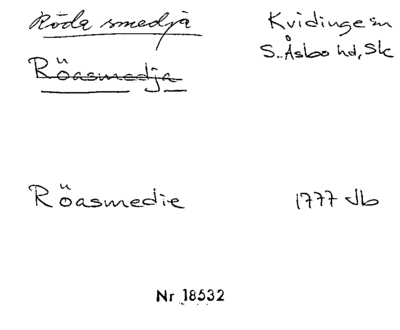 Röda smedja Kvidinge sn
S. Åsbo hd, Sk
Röasmedja
Röasmedie 1777 Jb
Nr 18532